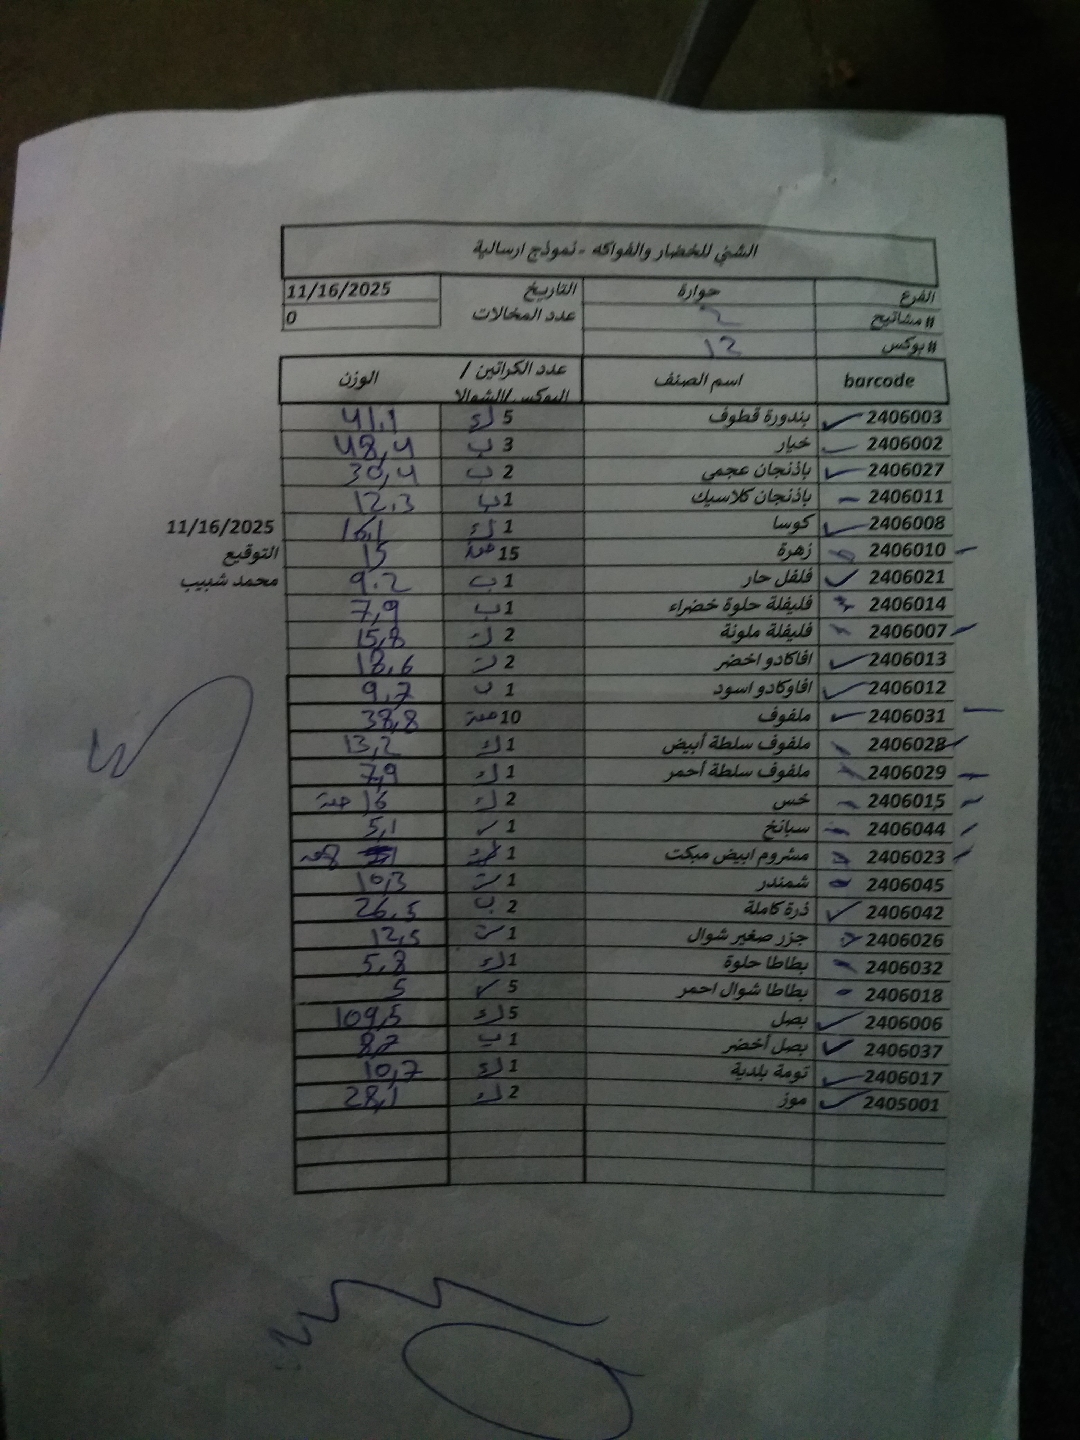 الشني للخضار والفواكه - نموذج ارسالية
الفرع حوارة التاريخ 11/16/2025
# مشاتيح 2 عدد المخالات 0
# بوكس 12
barcode اسم الصنف عدد الكراتين / البوكس /الشوالا الوزن
2406003 بندورة قطوف 5 ك 41,1
2406002 خيار 3 ب 48,4
2406027 باذنجان عجمي 2 ب 30,4
2406011 باذنجان كلاسيك 1 ب 12.3
2406008 كوسا 1 ك 16,1
2406010 زهرة 15 حبة 15
2406021 فلفل حار 1 ب 9.2
2406014 فليفلة حلوة خضراء 1 ب 7,9
2406007 فليفلة ملونة 2 ك 15,8
2406013 افاكادو اخضر 2 ب 18.6
2406012 افاوكادو اسود 1 ب 9,7
2406031 ملفوف 10 حبة 38,8
2406028 ملفوف سلطة أبيض 1 ك 13,2
2406029 ملفوف سلطة أحمر 1 ك 7,9
2406015 خس 2 ك 16 حبة
2406044 سبانخ 1 5,1
2406023 مشروم ابيض مبكت 1 8
2406045 شمندر 1 ب 10,3
2406042 ذرة كاملة 2 ب 26,5
2406026 جزر صغير شوال 1 12,5
2406032 بطاطا حلوة 1 ك 5,8
2406018 بطاطا شوال احمر 5 5
2406006 بصل 5 ك 109,5
2406037 بصل أخضر 1 ب 8,7
2406017 تومة بلدية 1 ك 10,7
2405001 موز 2 ك 28,1
11/16/2025
التوقيع
محمد شبيب